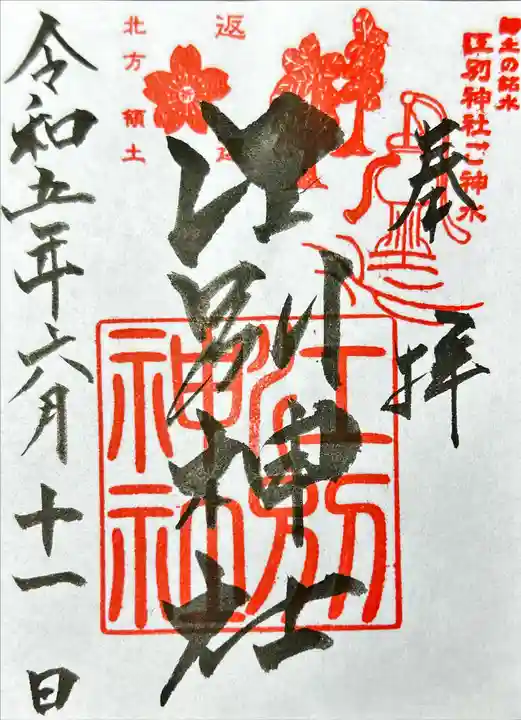 郷土の銘水
江別神社ご神水
奉拝
江別神社
江別
神社
返還
北方領土
令和五年六月十一日